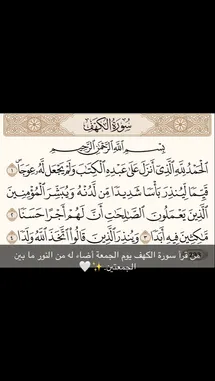 سُورَةُ الكَهْفِ
بِسْمِ اللَّهِ الرَّحْمَٰنِ الرَّحِيمِ
الْحَمْدُ لِلَّهِ الَّذِي أَنزَلَ عَلَىٰ عَبْدِهِ الْكِتَابَ وَلَمْ يَجْعَل لَّهُ عِوَجًا ١
قَيِّمًا لِّيُنذِرَ بَأْسًا شَدِيدًا مِّن لَّدُنْهُ وَيُبَشِّرَ الْمُؤْمِنِينَ
الَّذِينَ يَعْمَلُونَ الصَّالِحَاتِ أَنَّ لَهُمْ أَجْرًا حَسَنًا ٢
مَّاكِثِينَ فِيهِ أَبَدًا ٣ وَيُنذِرَ الَّذِينَ قَالُوا اتَّخَذَ اللَّهُ وَلَدًا ٤
من قرآ سورة الكهف يوم الجمعة أضاء له من النور ما بين
الجمعتين ✨🤍